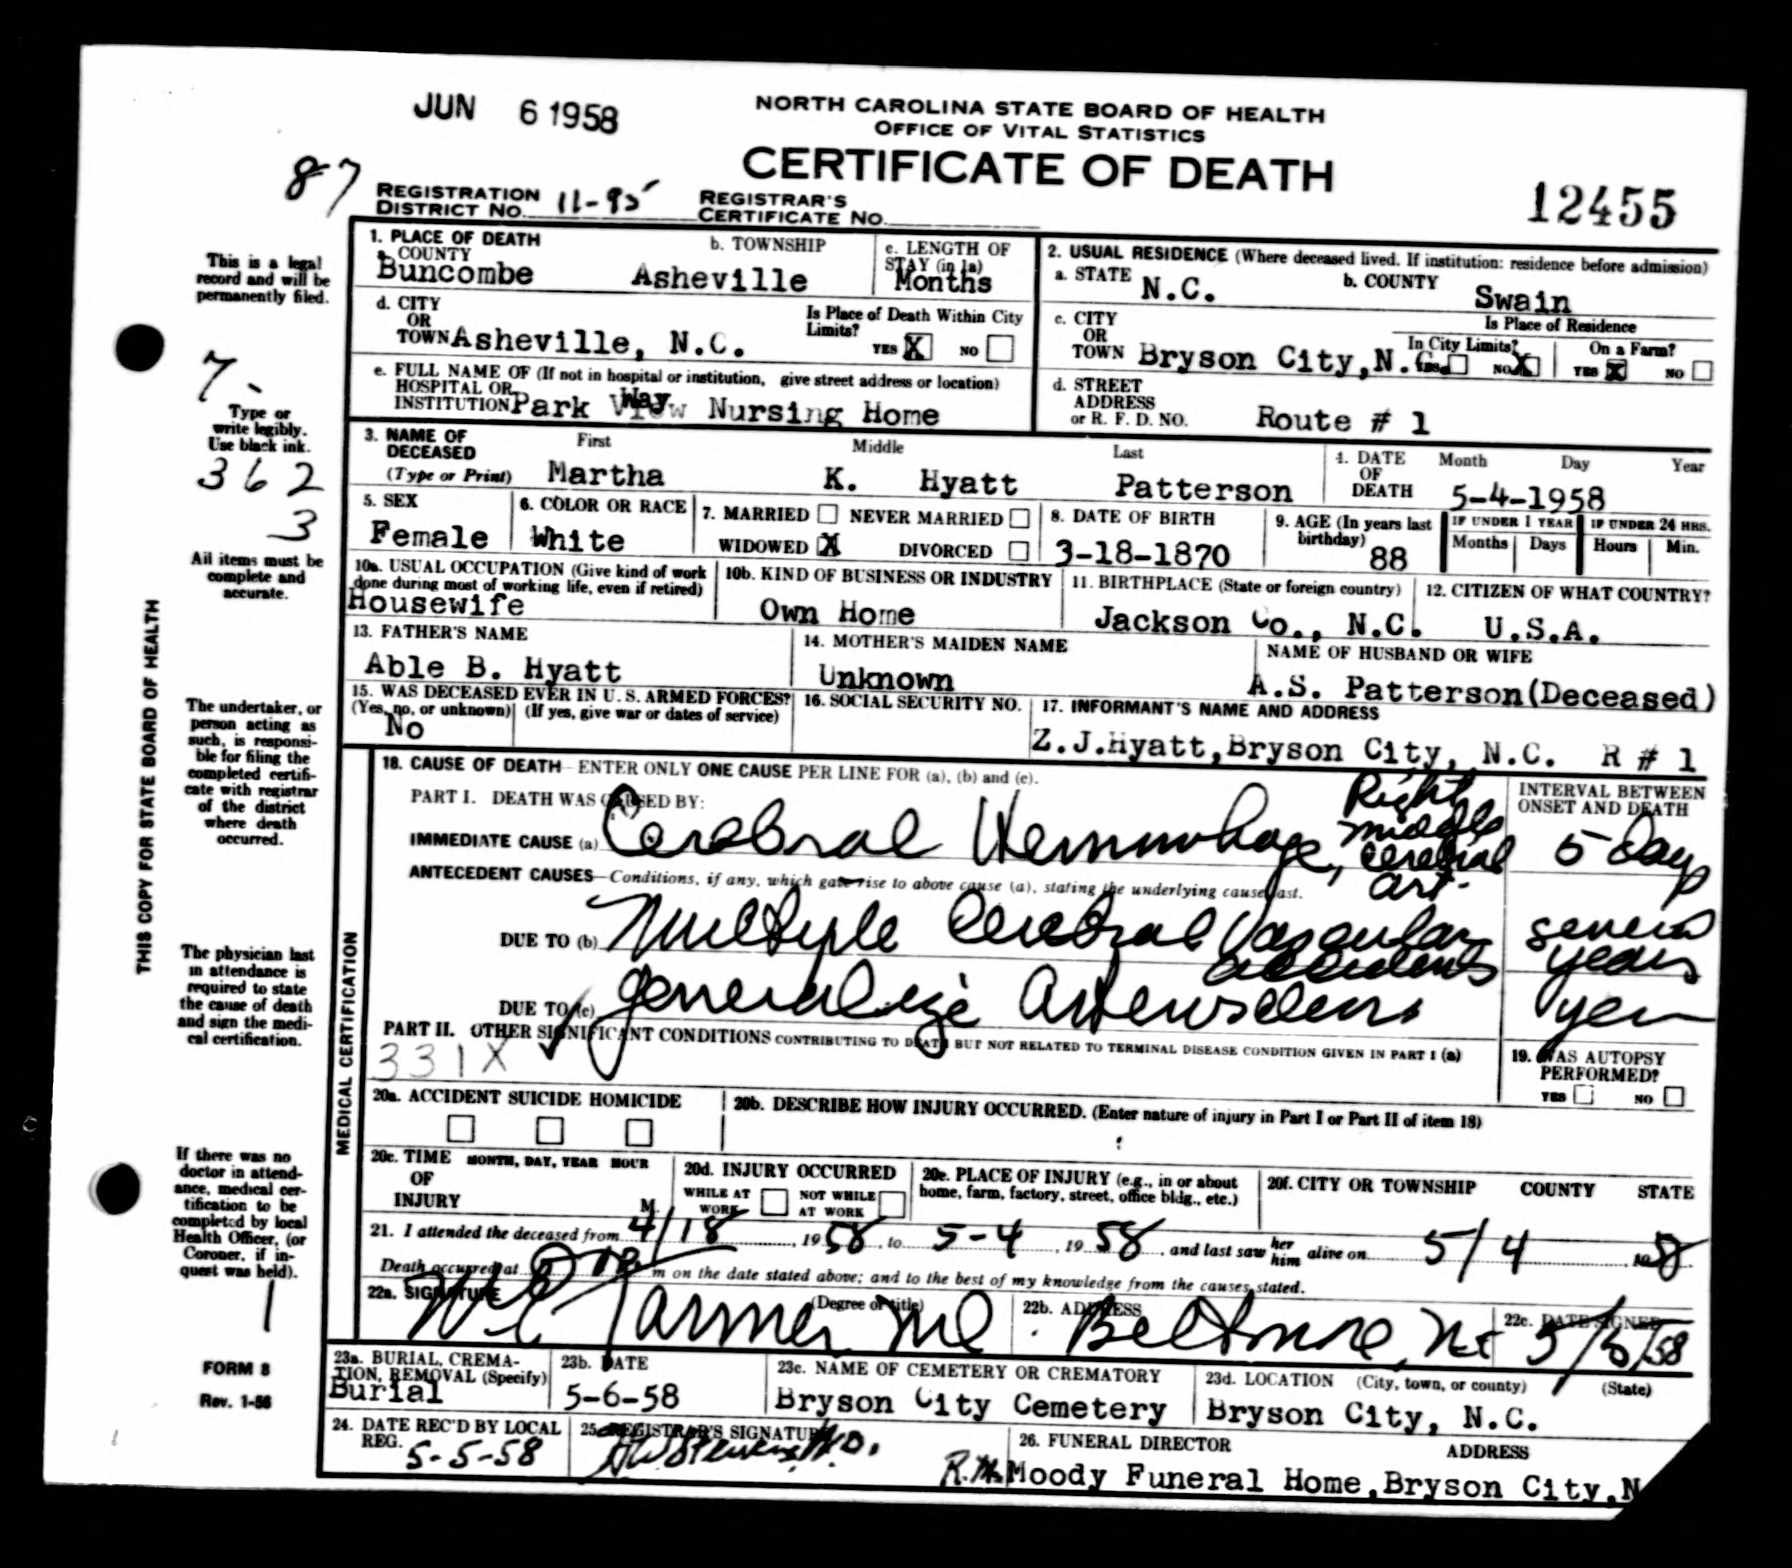 JUN 6 1958
NORTH CAROLINA STATE BOARD OF HEALTH
OFFICE OF VITAL STATISTICS
CERTIFICATE OF DEATH
87
REGISTRATION DISTRICT NO. 11-95 REGISTRAR'S CERTIFICATE NO.
12455
This is a legal record and will be permanently filed.
7-
Type or write legibly. Use black ink.
362
3
All items must be complete and accurate.
THIS COPY FOR STATE BOARD OF HEALTH
The undertaker, or person acting as such, is responsible for filing the completed certificate with registrar of the district where death occurred.
The physician last in attendance is required to state the cause of death and sign the medical certification.
If there was no doctor in attendance, medical certification to be completed by local Health Officer, (or Coroner, if inquest was held).
1
FORM 8
Rev. 1-56
1. PLACE OF DEATH
a. COUNTY Buncombe
b. TOWNSHIP Asheville
c. LENGTH OF STAY (in 1a) Months
2. USUAL RESIDENCE (Where deceased lived. If institution: residence before admission)
a. STATE N.C.
b. COUNTY Swain
d. CITY OR TOWN Asheville, N.C.
Is Place of Death Within City Limits? YES X NO
c. CITY OR TOWN Bryson City, N.C.
Is Place of Residence
In City Limits? YES NO X
On a Farm? YES X NO
e. FULL NAME OF (If not in hospital or institution, give street address or location) HOSPITAL OR INSTITUTION Park View Way Nursing Home
d. STREET ADDRESS or R. F. D. NO. Route # 1
3. NAME OF DECEASED (Type or Print)
First Middle Last
Martha K. Hyatt Patterson
4. DATE OF DEATH Month Day Year
5-4-1958
5. SEX Female
6. COLOR OR RACE White
7. MARRIED NEVER MARRIED
WIDOWED X DIVORCED
8. DATE OF BIRTH 3-18-1870
9. AGE (In years last birthday) 88
IF UNDER 1 YEAR Months Days
IF UNDER 24 HRS. Hours Min.
10a. USUAL OCCUPATION (Give kind of work done during most of working life, even if retired) Housewife
10b. KIND OF BUSINESS OR INDUSTRY Own Home
11. BIRTHPLACE (State or foreign country) Jackson Co., N.C.
12. CITIZEN OF WHAT COUNTRY? U.S.A.
13. FATHER'S NAME Able B. Hyatt
14. MOTHER'S MAIDEN NAME Unknown
NAME OF HUSBAND OR WIFE A.S. Patterson(Deceased)
15. WAS DECEASED EVER IN U. S. ARMED FORCES? (Yes, no, or unknown) (If yes, give war or dates of service) No
16. SOCIAL SECURITY NO.
17. INFORMANT'S NAME AND ADDRESS
Z.J.Hyatt,Bryson City, N.C. R # 1
MEDICAL CERTIFICATION
18. CAUSE OF DEATH—ENTER ONLY ONE CAUSE PER LINE FOR (a), (b) and (c).
INTERVAL BETWEEN ONSET AND DEATH
PART I. DEATH WAS CAUSED BY:
IMMEDIATE CAUSE (a) Cerebral Hemorrhage, Right middle cerebral art. 5 days
ANTECEDENT CAUSES—Conditions, if any, which gave rise to above cause (a), stating the underlying cause last.
DUE TO (b) Multiple Cerebral Vascular accidents several years
DUE TO (c) generalize
PART II. OTHER SIGNIFICANT CONDITIONS CONTRIBUTING TO DEATH BUT NOT RELATED TO TERMINAL DISEASE CONDITION GIVEN IN PART I (a)
331X
19. WAS AUTOPSY PERFORMED?
YES NO
20a. ACCIDENT SUICIDE HOMICIDE
20b. DESCRIBE HOW INJURY OCCURRED. (Enter nature of injury in Part I or Part II of item 18)
20c. TIME OF INJURY MONTH, DAY, YEAR HOUR M.
20d. INJURY OCCURRED WHILE AT WORK NOT WHILE AT WORK
20e. PLACE OF INJURY (e.g., in or about home, farm, factory, street, office bldg., etc.)
20f. CITY OR TOWNSHIP COUNTY STATE
21. I attended the deceased from 4/18, 1958, to 5-4, 1958, and last saw her him alive on 5/4 1958
Death occurred at m on the date stated above; and to the best of my knowledge from the causes stated.
22a. SIGNATURE (Degree or title)
22b. ADDRESS
22c. DATE SIGNED
Farmer MD Biltmore, NC 5/5/58
23a. BURIAL, CREMATION, REMOVAL (Specify) Burial
23b. DATE 5-6-58
23c. NAME OF CEMETERY OR CREMATORY Bryson City Cemetery
23d. LOCATION (City, town, or county) (State) Bryson City, N.C.
24. DATE REC'D BY LOCAL REG. 5-5-58
25. REGISTRAR'S SIGNATURE HW Stevens M.D.
26. FUNERAL DIRECTOR ADDRESS
R.M. Moody Funeral Home,Bryson City,N